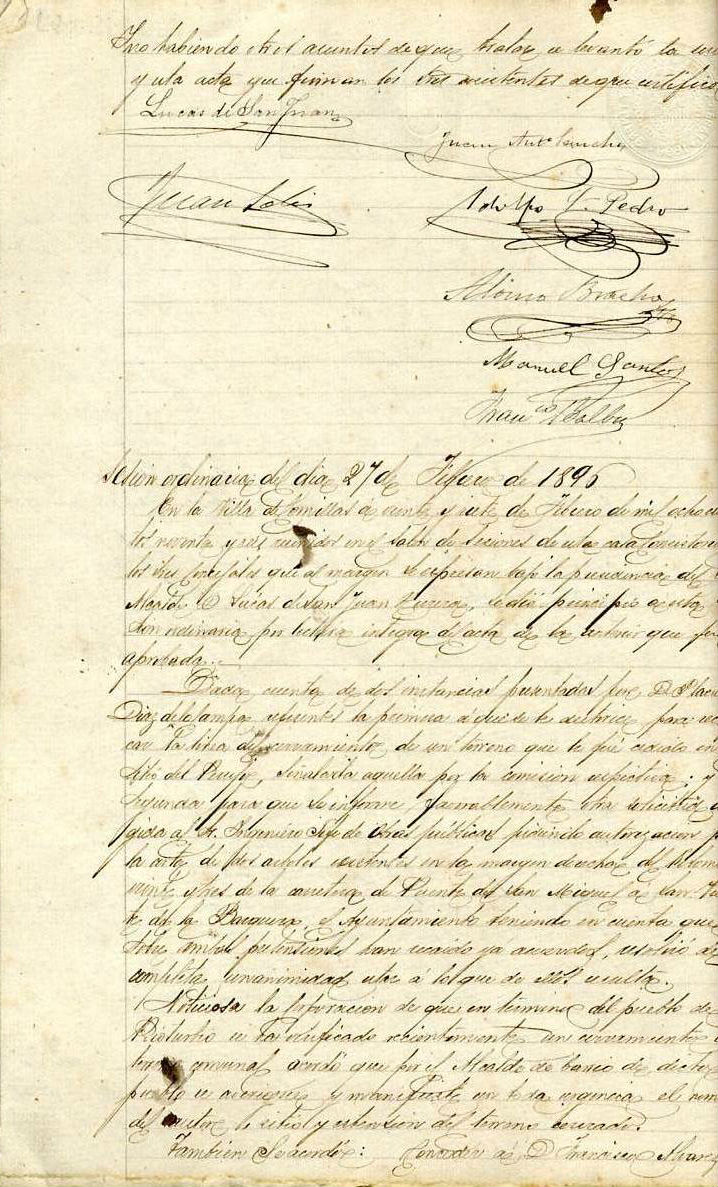 Y no habiendo otros asuntos de que tratar se levantó la
y esta acta que firman los Sres asistentes de que certifico
Lucas de San Juan
Juan Antº Sanchez
Juan Solis
Adolfo V. Pedro
Alonso Bracho
Manuel Santos
Franco Balbu
Sesion ordinaria del dia 27 de Febrero de 1896
En la Villa de Comillas a veinte y siete de Febrero de mil ochocien
tos noventa y seis reunidos en el salon de sesiones de esta casa Consistorial
los Sres Concejales que al margen se espresan bajo la presidencia del
Alcalde D. Lucas de San Juan se dió principio a esta
sion ordinaria por lectura integra del acta de la anterior que fue
aprobada.
Dada cuenta de dos instancias presentadas por D. Placi
Diaz de la Campa, referentes la primera a que se le autorice para
car la linea de cerramiento de un terreno que le fué cedido en
sitio del señalarla aquella por la comision respectiva; y
segunda para que se informe favorablemente otra solicitud
gida al Sr. Ingeniero Jefe de Obras públicas pidiendo autorizacion
la corta de dos arboles existentes en la margen derecha del kilome
veinte y tres de la carretera de Puente de San Miguel a San Vicen
te de la Barquera, el Ayuntamiento teniendo en cuenta que
sobre ambas pretensiones han recaido ya acuerdos, resolvió de
completa unanimidad estar á lo que de ellos resulta.
Noticiosa la Corporacion de que en termino del pueblo de
Rioturbio se ha verificado recientemente un cerramiento
terreno comunal acordó que por el Alcalde de barrio de dicho
pueblo se averigue y manifieste con toda urgencia el nom
del autor, el sitio y estension del terreno cerrado.
Tambien se acordó: Conceder á D. Francisco Alvarez